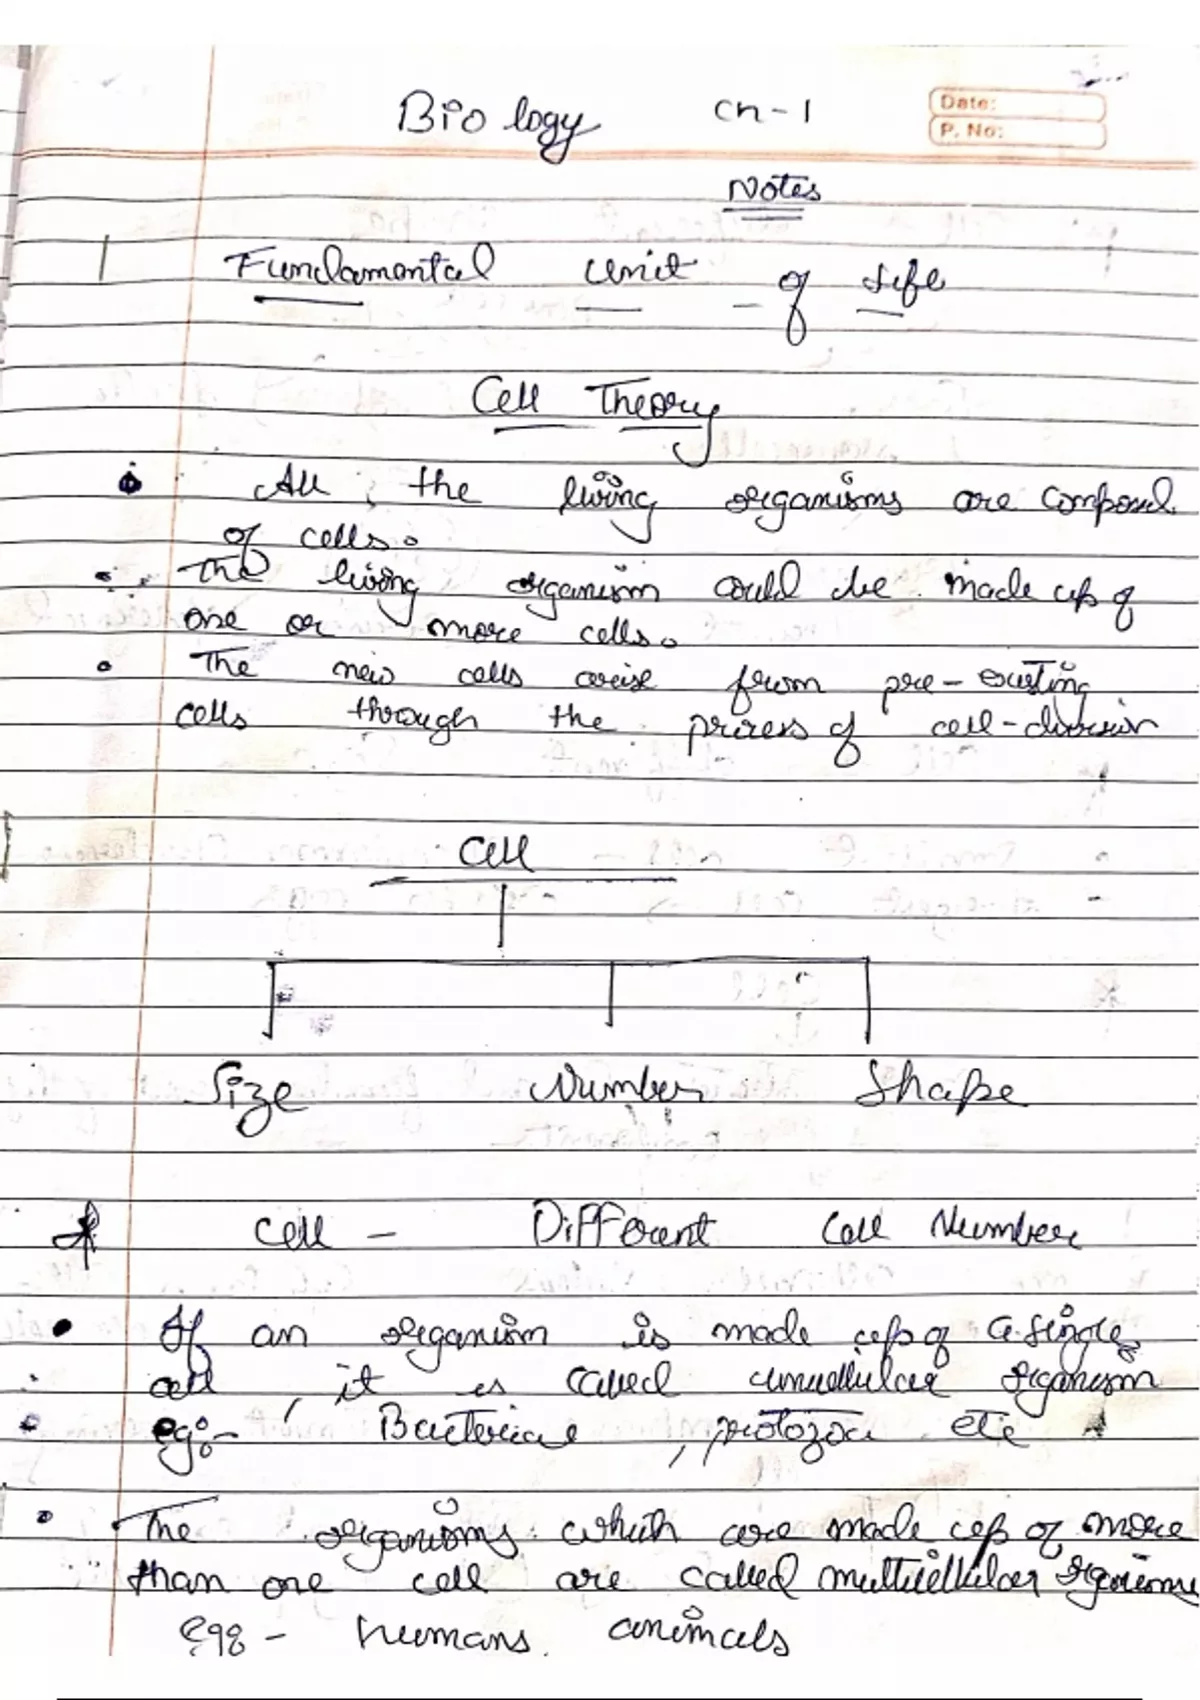 Biology Ch-1
Date:
P. No:
Notes
1 Fundamental Unit of Life
Cell Theory
All the living organisms are composed
of cells.
The living organism could be made up of
one or more cells.
The new cells arise from pre-existing
cells through the process of cell-division
Cell
Size Number Shape
Cell - Different Cell Number
If an organism is made up of a single
cell, it is called unicellular organism
eg:- Bacteriae, protozoa etc
The organisms which are made up of more
than one cell are called multicellular organisms
eg:- humans. animals